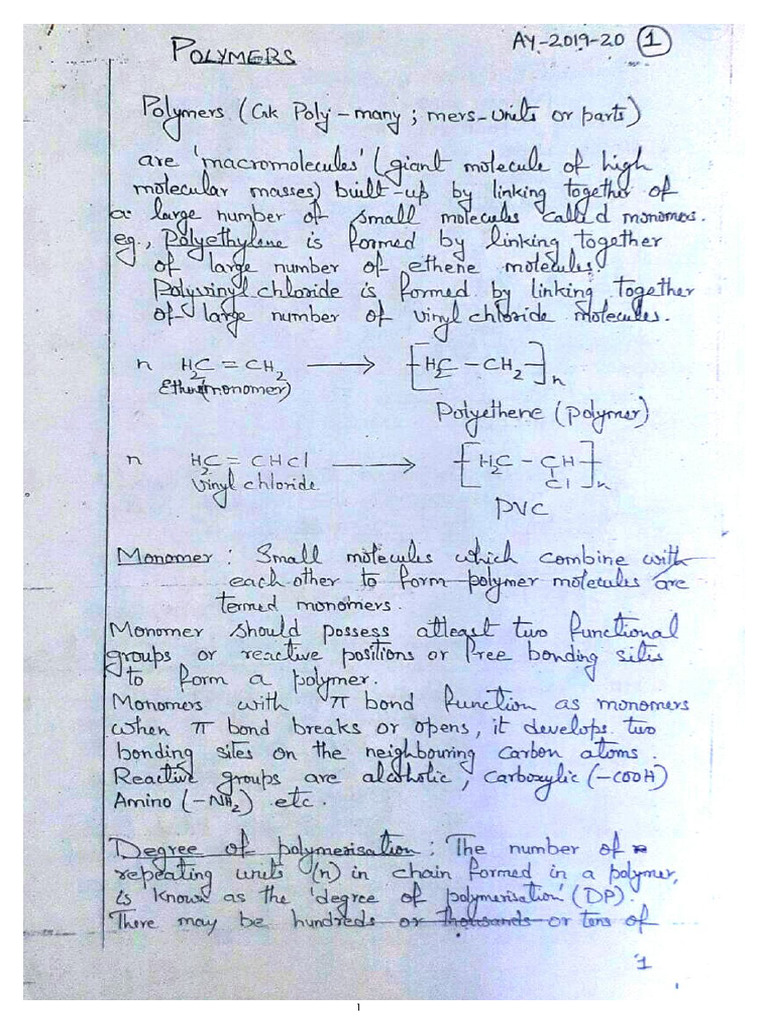 POLYMERS
AY-2019-20 1
Polymers (Gk Poly-many; mers-units or parts)
are 'macromolecules' (giant molecule of high
molecular masses) built-up by linking together of
a large number of small molecules called monomers.
eg., Polyethylene is formed by linking together
of large number of ethene molecules.
Polyvinyl chloride is formed by linking together
of large number of vinyl chloride molecules.
n H₂C = CH₂ ⟶ [H₂C - CH₂]ₙ
Ethene (monomer)
Polyethene (polymer)
n H₂C = CHCl ⟶ [H₂C - CH]ₙ
Cl
vinyl chloride
PVC
Monomer : Small molecules which combine with
each other to form polymer molecules are
termed monomers.
Monomer should possess atleast two functional
groups or reactive positions or free bonding sites
to form a polymer.
Monomers with π bond function as monomers
when π bond breaks or opens, it develops two
bonding sites on the neighbouring carbon atoms.
Reactive groups are alcoholic, carboxylic (-COOH)
Amino (-NH₂) etc.
Degree of polymerisation : The number of
repeating units (n) in chain formed in a polymer,
is known as the 'degree of polymerisation' (DP).
There may be hundreds or thousands or tens of
1
1